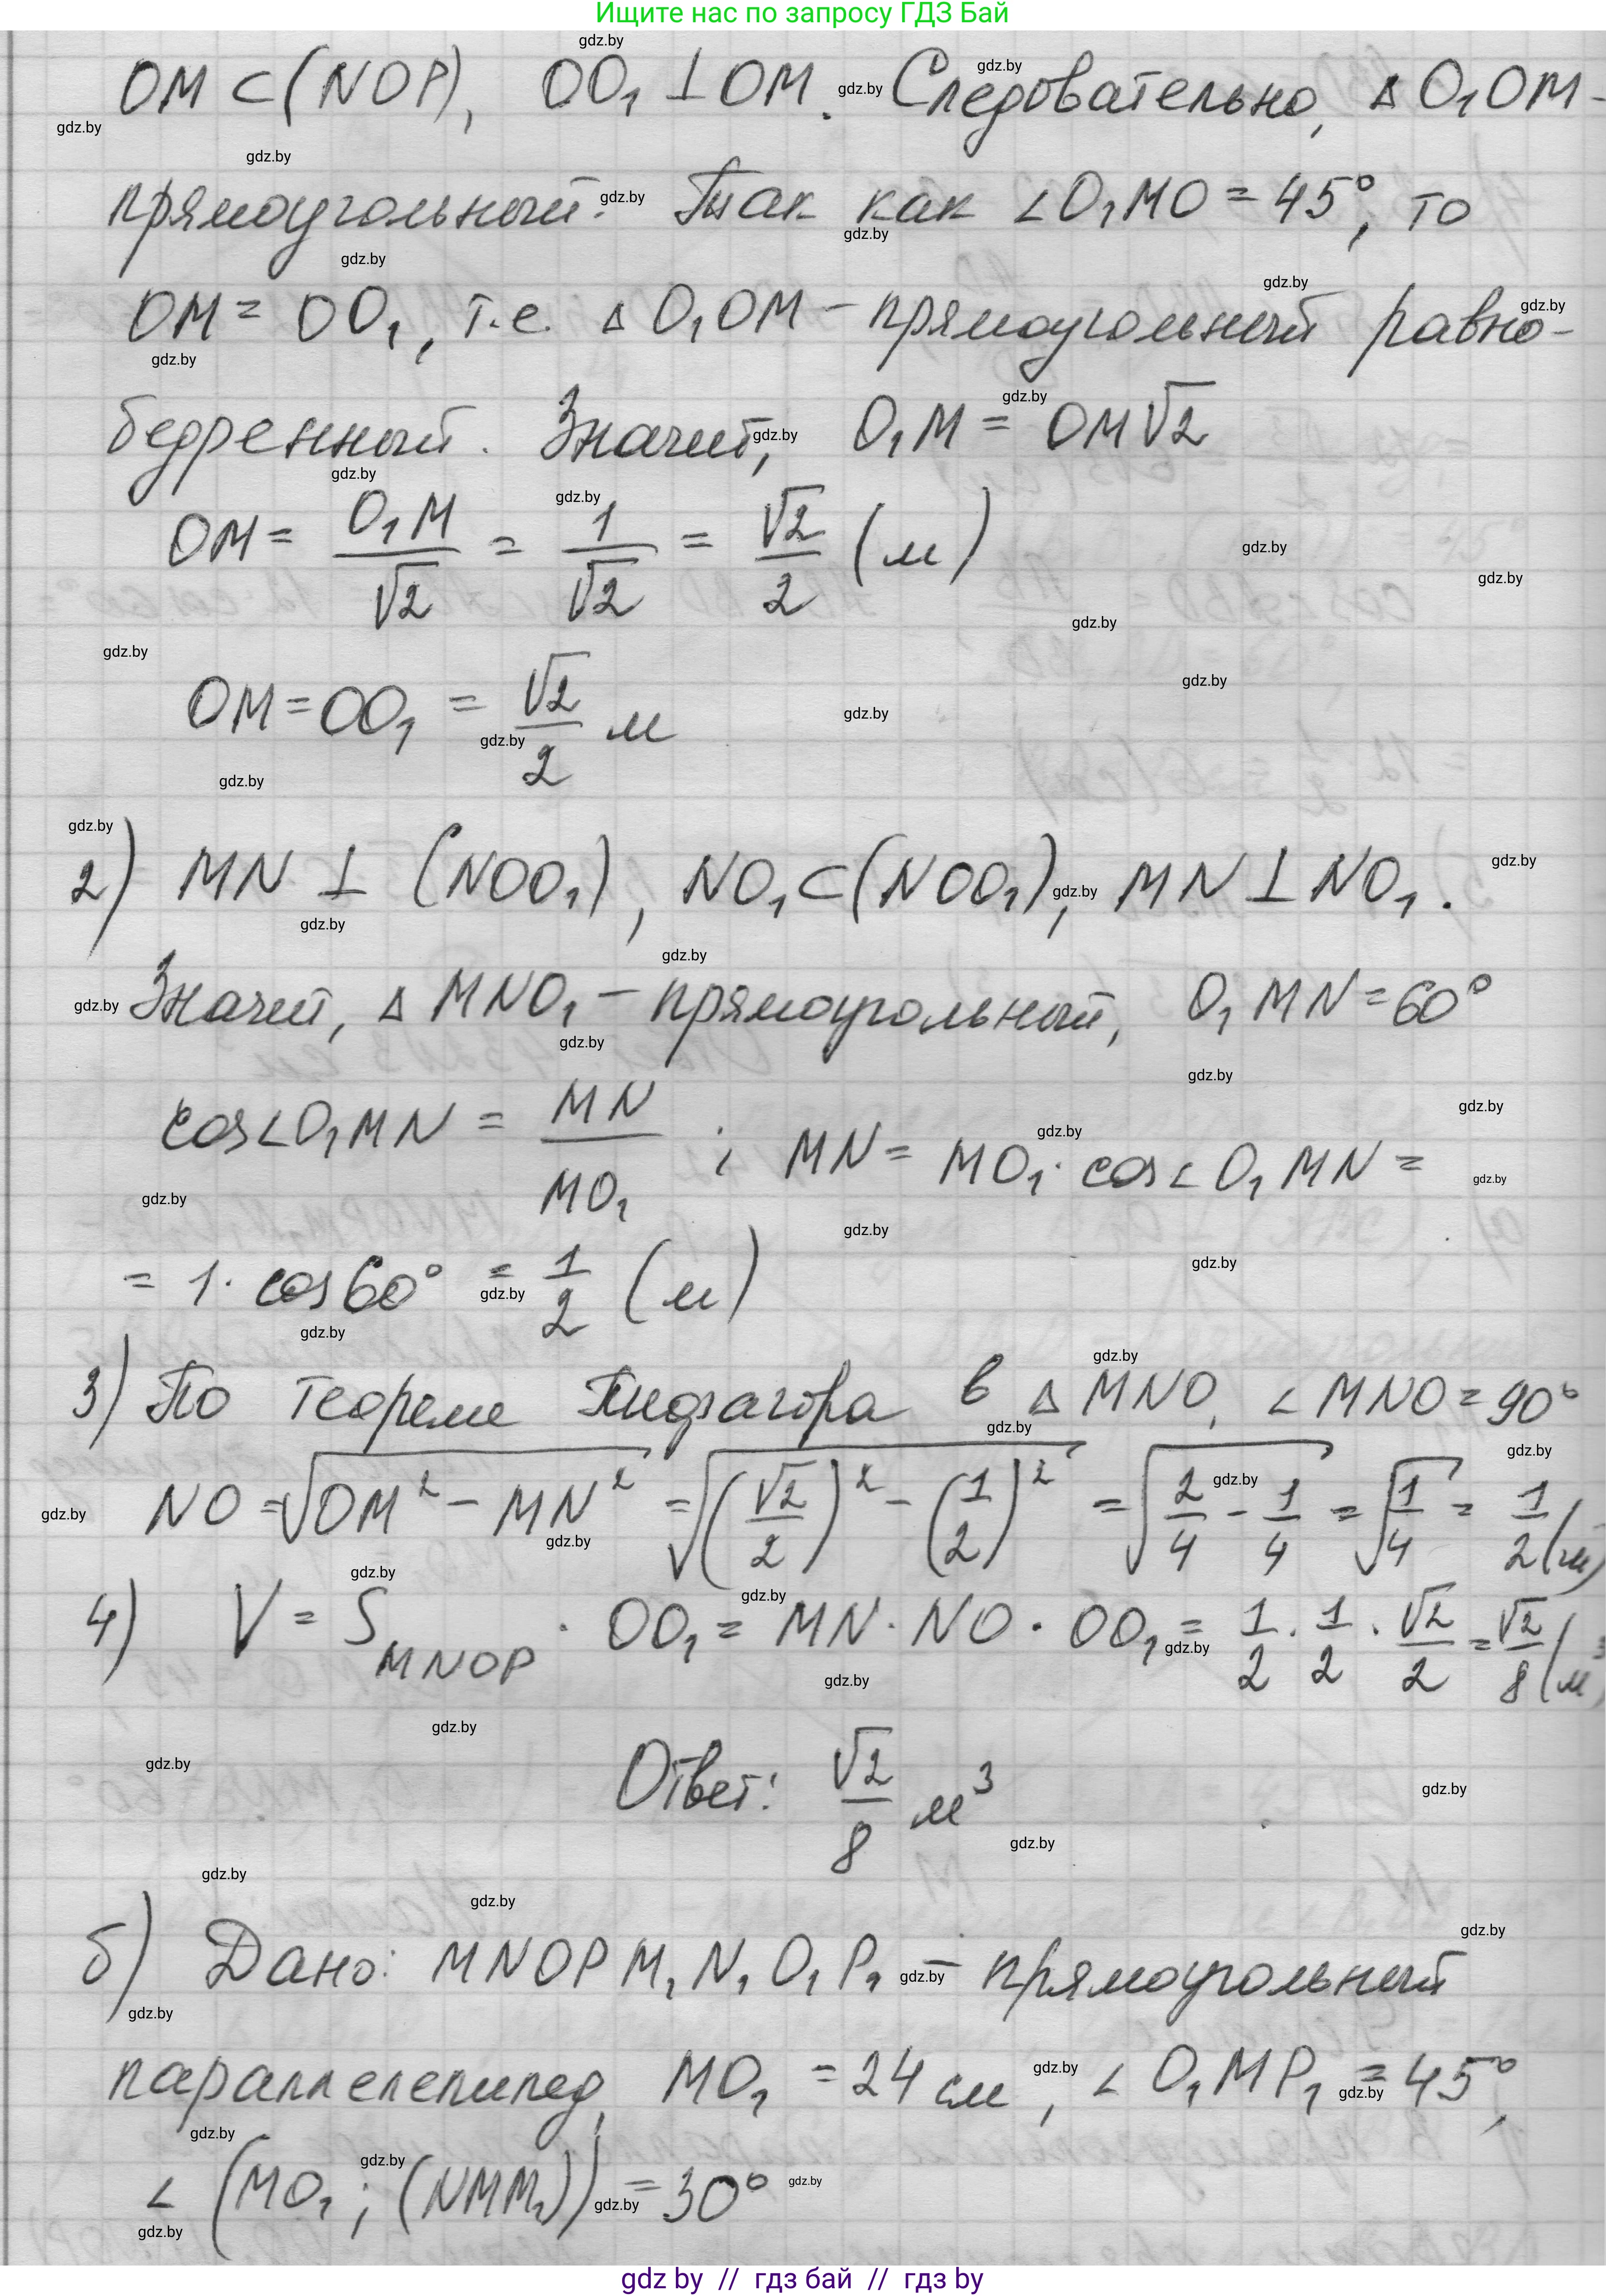 Ищите нас по запросу ГДЗ Бай
OM ⊂ (NOP), OO₁ ⊥ OM. Следовательно, △ O₁OM -
прямоугольный. Так как ∠O₁MO = 45°, то
OM = OO₁, т.е. △ O₁OM - прямоугольный равно-
бедренный. Значит, O₁M = OM√2
OM = O₁M/√2 = 1/√2 = √2/2 (м)
OM = OO₁ = √2/2 м
2) MN ⊥ (NOO₁), NO₁ ⊂ (NOO₁), MN ⊥ NO₁.
Значит, △ MNO₁ - прямоугольный, O₁MN = 60°
cos∠O₁MN = MN/MO₁ ; MN = MO₁ · cos∠O₁MN =
= 1 · cos60° = 1/2 (м)
3) По теореме Пифагора в △ MNO, ∠MNO = 90°
NO = √(OM² - MN²) = √((√2/2)² - (1/2)²) = √(2/4 - 1/4) = √(1/4) = 1/2 (м)
4) V = S_MNOP · OO₁ = MN · NO · OO₁ = 1/2 · 1/2 · √2/2 = √2/8 (м³)
Ответ: √2/8 м³
б) Дано: MNOPM₁N₁O₁P₁ - прямоугольный
параллелепипед, MO₁ = 24 см, ∠O₁MP₁ = 45°,
∠(MO₁; (NMM₁)) = 30°
gdz by // гдз бай // гдз by